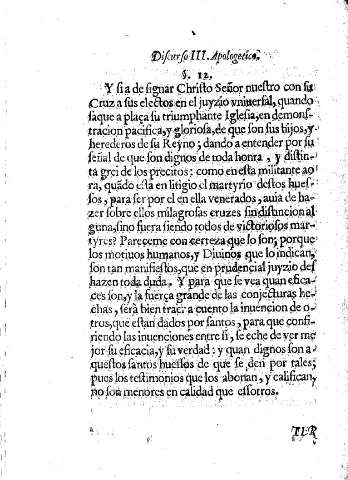 Discurso III. Apologetico.
§. 12.
Y si a de signar Christo Señor nuestro con su
Cruz a sus electos en el juyzio vniuersal, quando
saque a plaça su triumphante Iglesia, en demons-
tracion pacifica, y gloriosa, de que son sus hijos, y
herederos de su Reyno; dando a entender por su
señal de que son dignos de toda honra, y distin-
ta grei de los precitos: como en esta militante ao-
ra, quãdo està en litigio el martyrio destos hues-
sos, para ser por el en ella venerados, auia de ha-
zer sobre ellos milagrosas cruzes sin distincion al
guna, sino fuera siendo todos de victoriosos mar-
tyres? Pareceme con certeza que lo son; porque
los motiuos humanos, y Diuinos que lo indican,
son tan manifiestos, que en prudencial juyzio des
hazen toda duda. Y para que se vea quan efica-
ces son, y la fuerça grande de las conjecturas he-
chas, serà bien traer a cuento la inuencion de o-
tros, que estan dados por santos, para que confi-
riendo las inuenciones entre si, se eche de ver me
jor su eficacia, y su verdad: y quan dignos son a-
questos santos huessos de que se den por tales;
pues los testimonios que los abonan, y califican,
no son menores en calidad que essotros.
TER